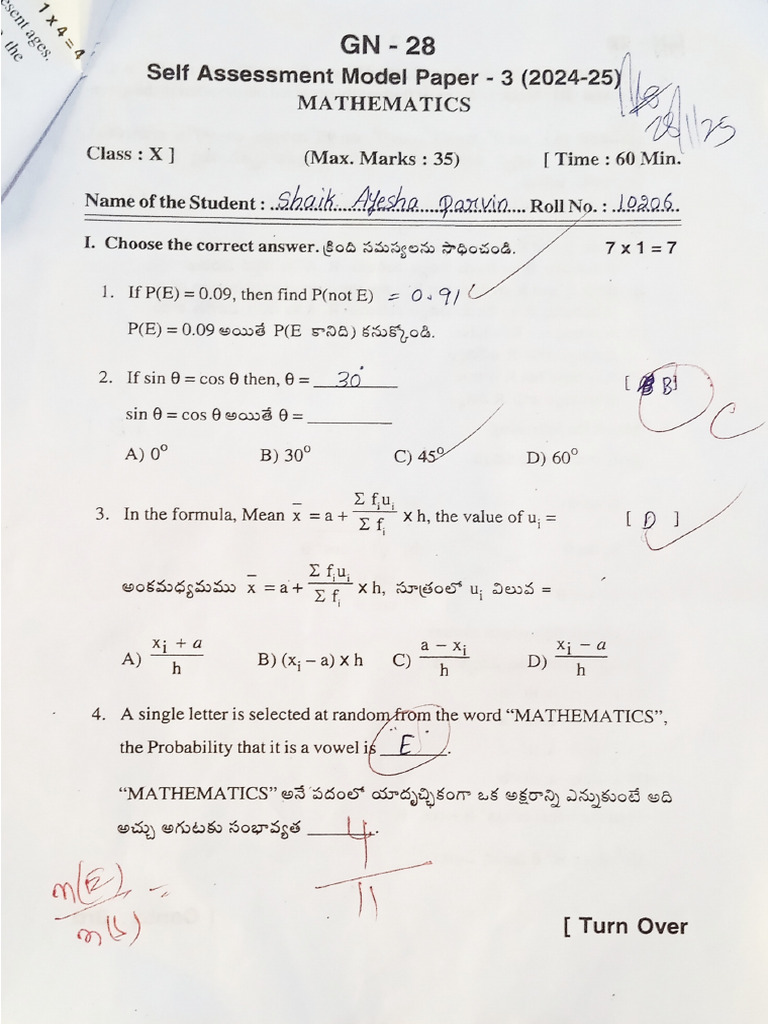 1 x 4 = 4
esent ages.
the
GN - 28
Self Assessment Model Paper - 3 (2024-25)
MATHEMATICS
28/1/25
Class : X ] (Max. Marks : 35) [ Time : 60 Min.
Name of the Student : Shaik Ayesha Parvin Roll No. : 10206
I. Choose the correct answer. క్రింది సమస్యలను సాధించండి. 7 x 1 = 7
1. If P(E) = 0.09, then find P(not E) = 0.91
P(E) = 0.09 అయితే P(E కానిది) కనుక్కోండి.
2. If sin θ = cos θ then, θ = 30° [ B ]
sin θ = cos θ అయితే θ = ________
C
A) 0° B) 30° C) 45° D) 60°
3. In the formula, Mean x̄ = a + Σ fᵢuᵢ / Σ fᵢ x h, the value of uᵢ = [ D ]
అంకమధ్యమము x̄ = a + Σ fᵢuᵢ / Σ fᵢ x h, సూత్రంలో uᵢ విలువ =
A) xᵢ + a / h B) (xᵢ – a) x h C) a – xᵢ / h D) xᵢ – a / h
4. A single letter is selected at random from the word “MATHEMATICS”,
the Probability that it is a vowel is "E".
“MATHEMATICS” అనే పదంలో యాదృచ్ఛికంగా ఒక అక్షరాన్ని ఎన్నుకుంటే అది
అచ్చు అగుటకు సంభావ్యత ________.
n(E) / n(S) = 4 / 11
[ Turn Over